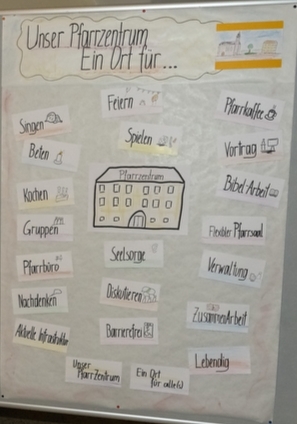 Unser Pfarrzentrum
Ein Ort für...
Singen
Beten
Kochen
Gruppen
Pfarrbüro
Nachdenken
Aktuelle Infostruktur
Feiern
Spielen
Pfarrzentrum
Seelsorge
Diskutieren
Barrierefrei
Unser
Pfarrzentrum
Ein Ort
für alle(s)
Pfarrkaffee
Vortrag
Bibel-Arbeit
Flexibler Pfarrsaal
Verwaltung
ZusammenArbeit
Lebendig